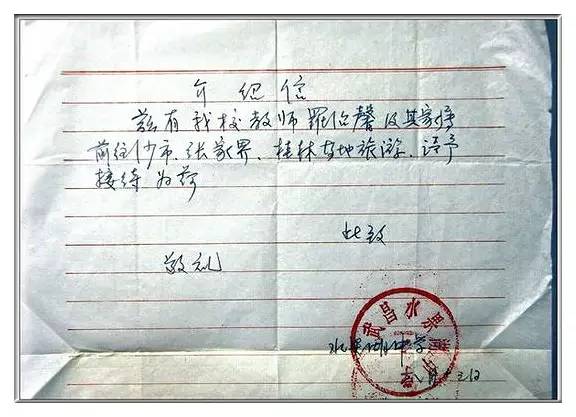 介绍信
兹有我校教师罗伯馨及其家属
前往沙市、张家界、桂林等地旅游、请予
接待为荷
此致
敬礼
武昌水果湖
水果湖中学
八月十三日